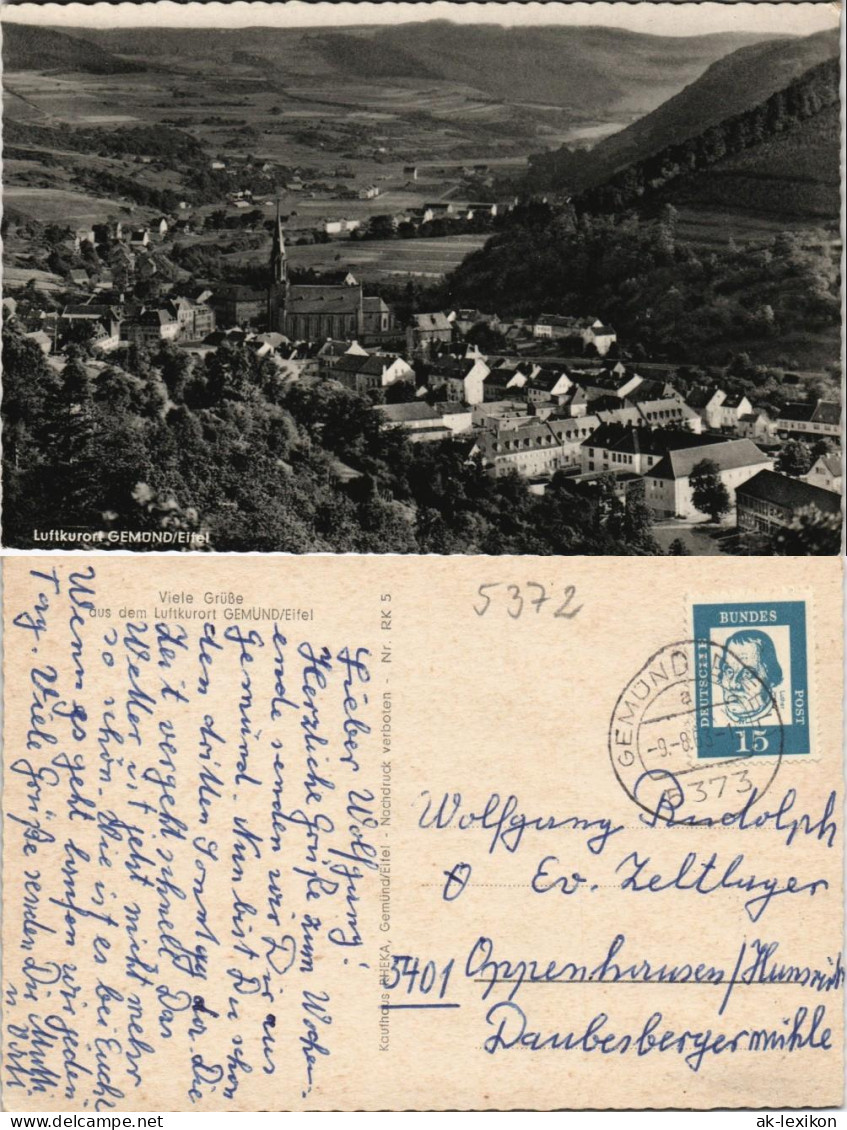 Luftkurort GEMÜND/Eifel
Viele Grüße
aus dem Luftkurort GEMÜND/Eifel
Lieber Wolfgang!
Herzliche Grüße zum Wochen-
ende senden wir Dir aus
Gemünd. Nun bist Du schon
den dritten Sonntag da. Die
Zeit vergeht schnell. Das
Wetter ist jetzt nicht mehr
so schön. Wie ist es bei Euch?
Wenn es geht laufen wir jeden
Tag. Viele Grüße senden Dir Mutti
u. Vati
Kaufhaus RHEKA, Gemünd/Eifel - Nachdruck verboten - Nr. RK 5
5372
DEUTSCHE BUNDESPOST
15
GEMÜND
a
-9.-8.63-
5373
Wolfgang Rudolph
Ev. Zeltlager
5401 Oppenhausen/Hunsrück
Daubesbergermühle
ak-lexikon